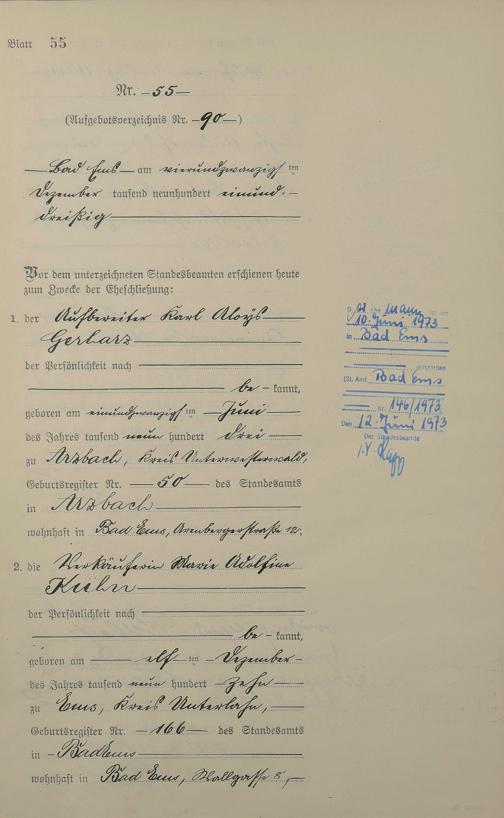 Blatt 55
Nr. 55
(Aufgebotsverzeichnis Nr. 90)
Bad Ems am vierundzwanzigsten
Dezember tausend neunhundert einund-
dreißig
Vor dem unterzeichneten Standesbeamten erschienen heute
zum Zwecke der Eheschließung:
1. der Aufbereiter Karl Aloys
Gerharz
der Persönlichkeit nach
be-kannt,
geboren am einundzwanzigsten Juni
des Jahres tausend neun hundert drei
zu Arzbach, Kreis Unterwesterwald,
Geburtsregister Nr. 50 des Standesamts
in Arzbach
wohnhaft in Bad Ems, Arenbergerstraße 12,
2. die Verkäuferin Marie Adolfine
der Persönlichkeit nach
be-kannt,
geboren am elften Dezember
des Jahres tausend neun hundert zehn
zu Ems, Kreis Unterlahn,
Geburtsregister Nr. 166 des Standesamts
in Bad Ems
wohnhaft in Bad Ems, Wallgasse 5,
Mann
10. Juni 1973
in Bad Ems
verstorben
(St. Amt Bad Ems
Nr. 146/1973
Den 12. Juni 1973
Der Standesbeamte
I.V.